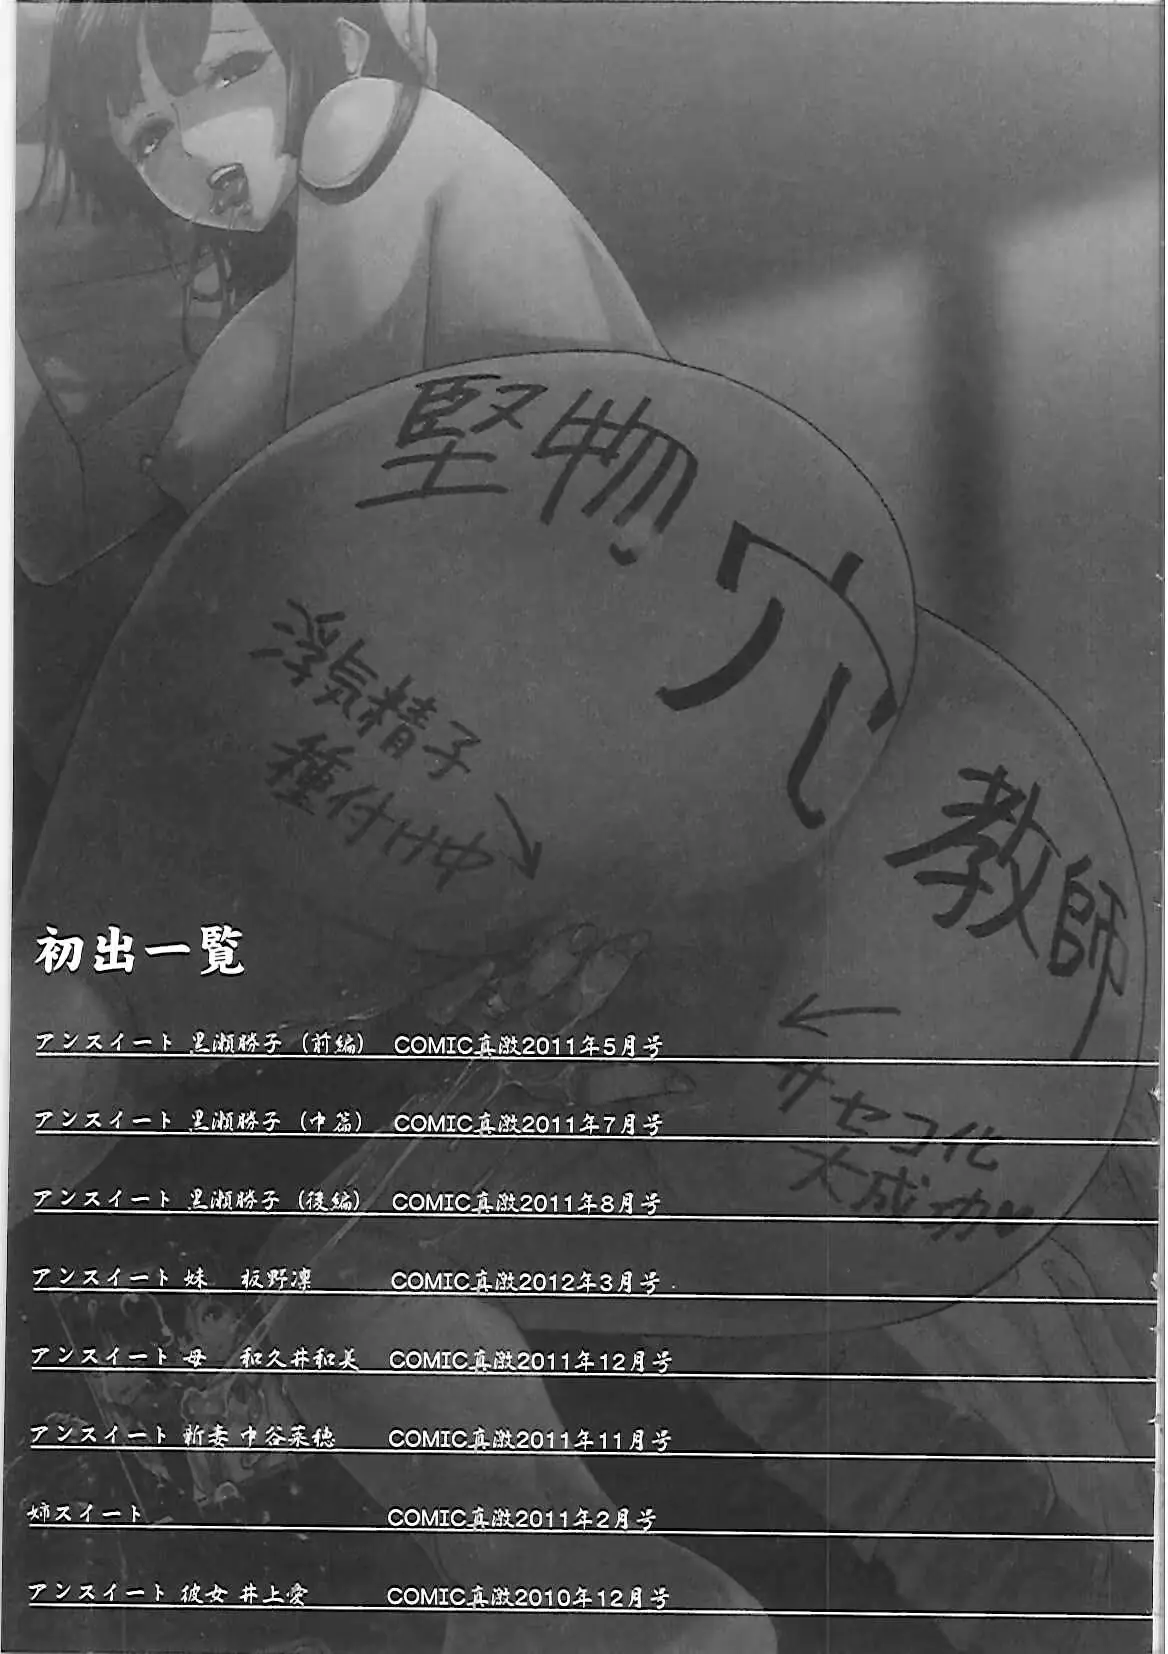 堅物
穴
教師
浮気精子
種付け中
サセコ化
大成功
初出一覧
アンスイート 黒瀬勝子（前編） COMIC真激2011年5月号
アンスイート 黒瀬勝子（中篇） COMIC真激2011年7月号
アンスイート 黒瀬勝子（後編） COMIC真激2011年8月号
アンスイート 妹 板野凛 COMIC真激2012年3月号
アンスイート 母 和久井和美 COMIC真激2011年12月号
アンスイート 新妻 中谷菜穂 COMIC真激2011年11月号
姉スイート COMIC真激2011年2月号
アンスイート 彼女 井上愛 COMIC真激2010年12月号